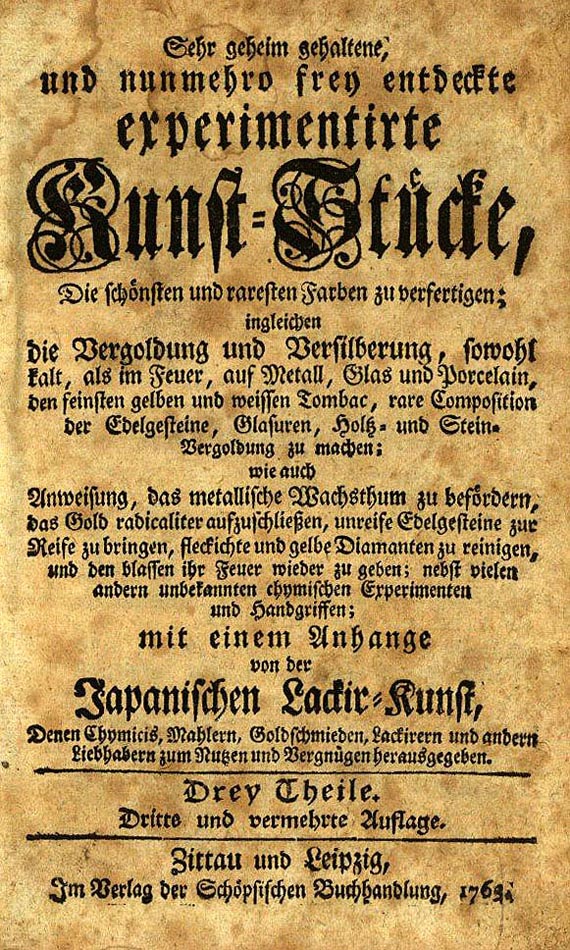 Sehr geheim gehaltene,
und nunmehro frey entdeckte
experimentirte
Kunst-Stücke,
Die schönsten und raresten Farben zu verfertigen;
ingleichen
die Vergoldung und Versilberung, sowohl
kalt, als im Feuer, auf Metall, Glas und Porcelain,
den feinsten gelben und weissen Tombac, rare Composition
der Edelgesteine, Glasuren, Holtz- und Stein-
Vergoldung zu machen;
wie auch
Anweisung, das metallische Wachsthum zu befördern,
das Gold radicaliter aufzuschließen, unreife Edelgesteine zur
Reife zu bringen, fleckichte und gelbe Diamanten zu reinigen,
und den blassen ihr Feuer wieder zu geben; nebst vielen
andern unbekannten chymischen Experimenten
und Handgriffen;
mit einem Anhange
von der
Japanischen Lackir-Kunst,
Denen Chymicis, Mahlern, Goldschmieden, Lackirern und andern
Liebhabern zum Nutzen und Vergnügen herausgegeben.
Drey Theile.
Dritte und vermehrte Auflage.
Zittau und Leipzig,
Im Verlag der Schöpsischen Buchhandlung,